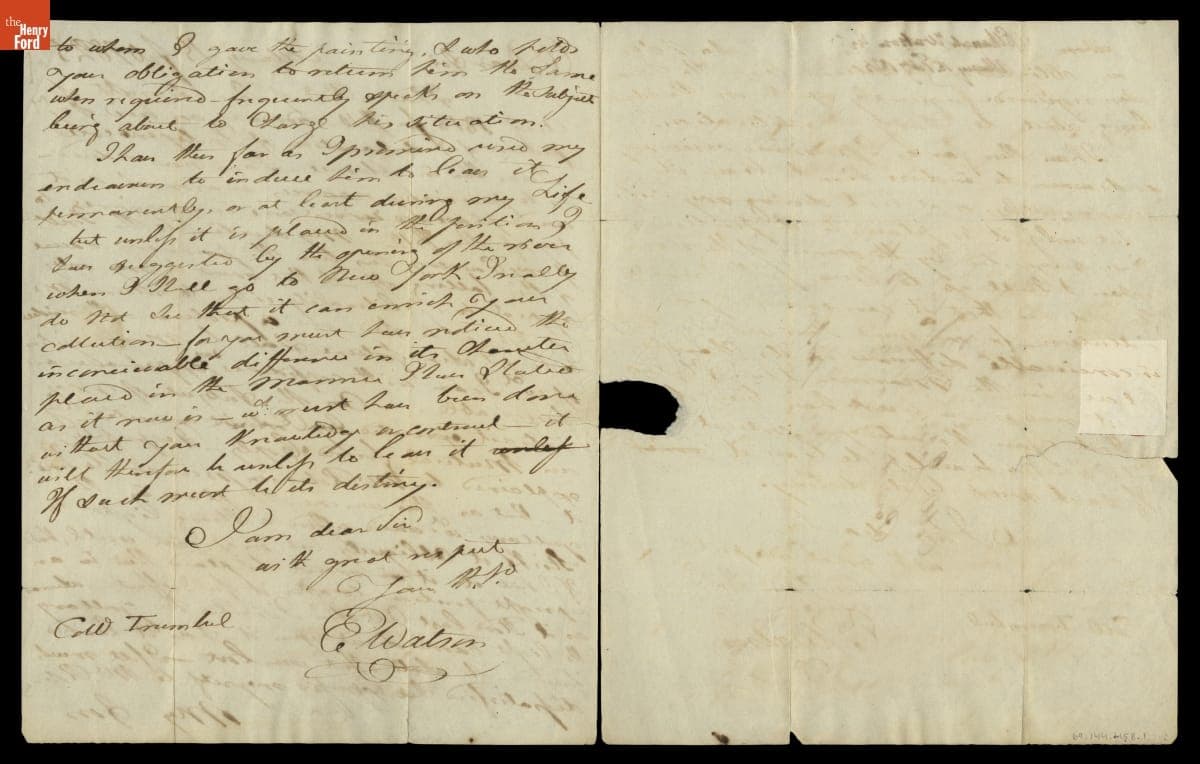 the
Henry
Ford
to whom I gave the painting, & who holds
your obligation to return him the Same
when required frequently speaks on the Subject
being about to Change his situation.
I have thus far as I promised used my
endeavors to induce him to leave it
permanently, or at least during my Life
but unless it is placed in the position I
have suggested by the opening of the river
when I Shall go to New York I really
do not See that it can enrich your
collection - for you must have noticed the
inconceivable difference in its Character
placed in the manner I have Stated
as it now is - wh. must have been done
without your Knowledge or consent - it
will therefore be useless to leave it unless
If such must be its destiny.
I am dear Sir
with great respect
Your
Coll Trumbul
E Watson
69.144.458.1